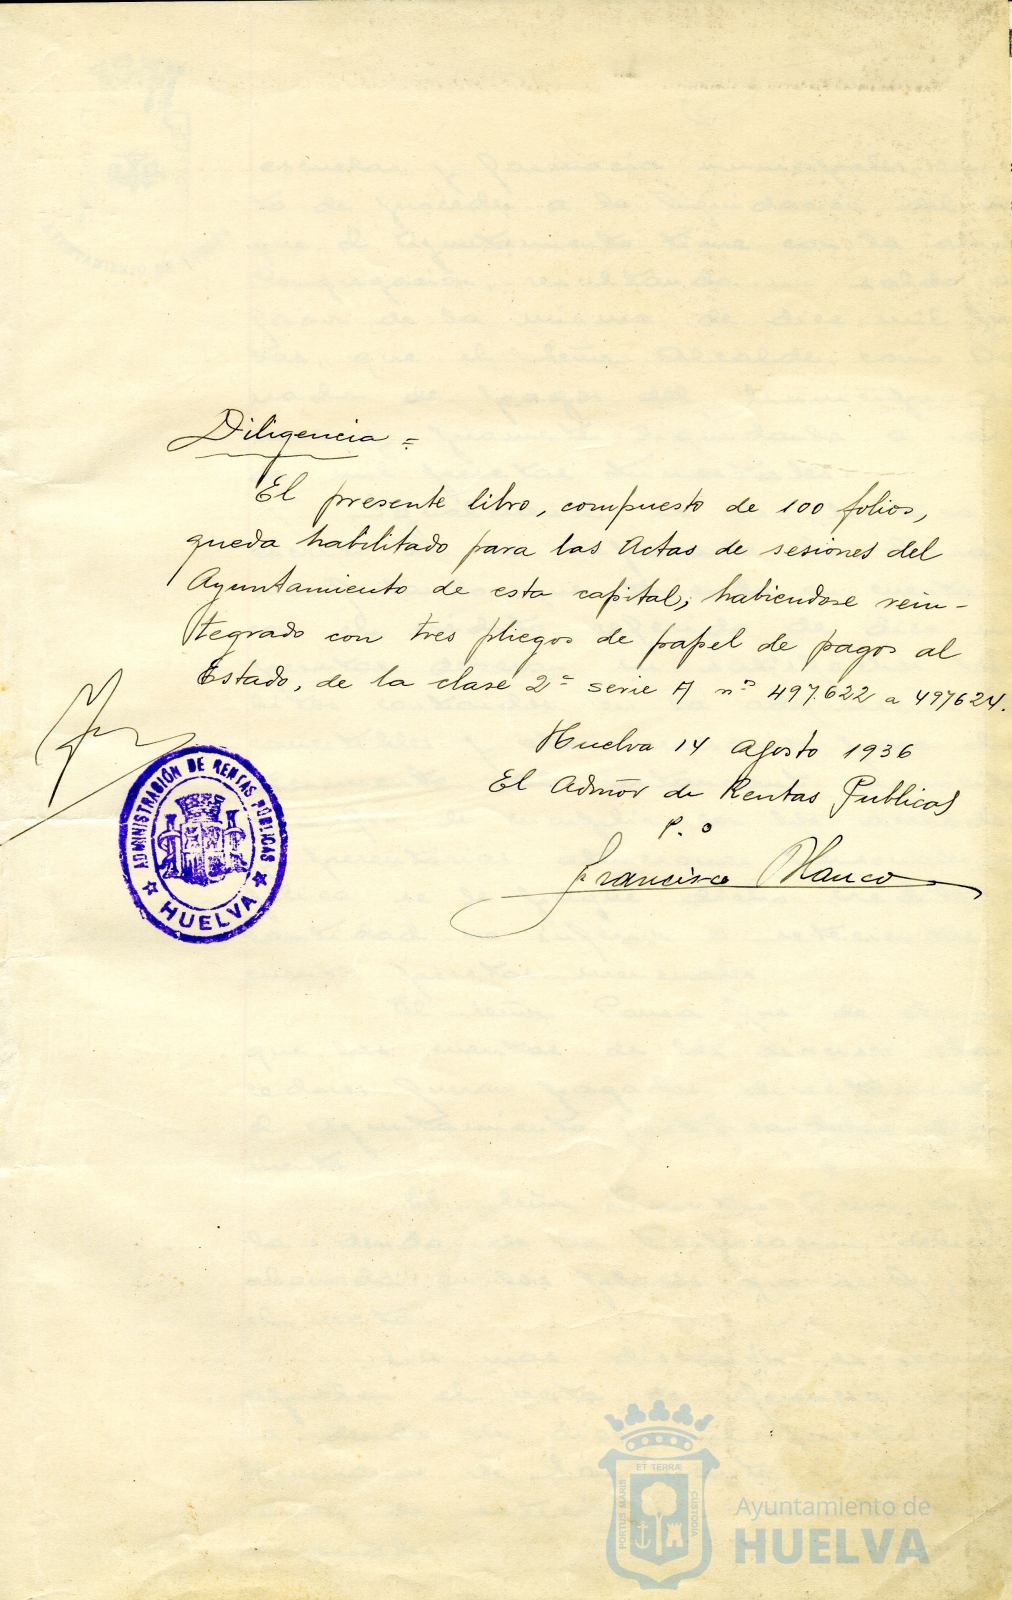 Diligencia =
El presente libro, compuesto de 100 folios,
queda habilitado para las Actas de sesiones del
Ayuntamiento de esta capital; habiendose rein-
tegrado con tres pliegos de papel de pagos al
Estado, de la clase 2ª serie A nº 497.622 a 497624.
Huelva 14 Agosto 1936
El Admor de Rentas Publicas
P.º
Francisco Blanco
ADMINISTRACIÓN DE RENTAS PÚBLICAS
HUELVA
ET TERRÆ
PORTUS MARIS
CUSTODIA
Ayuntamiento de
HUELVA